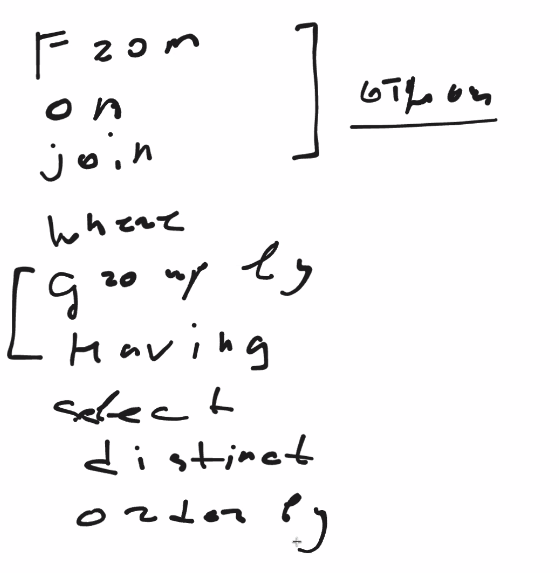 From
on
join
where
Group by
Having
select
distinct
order by